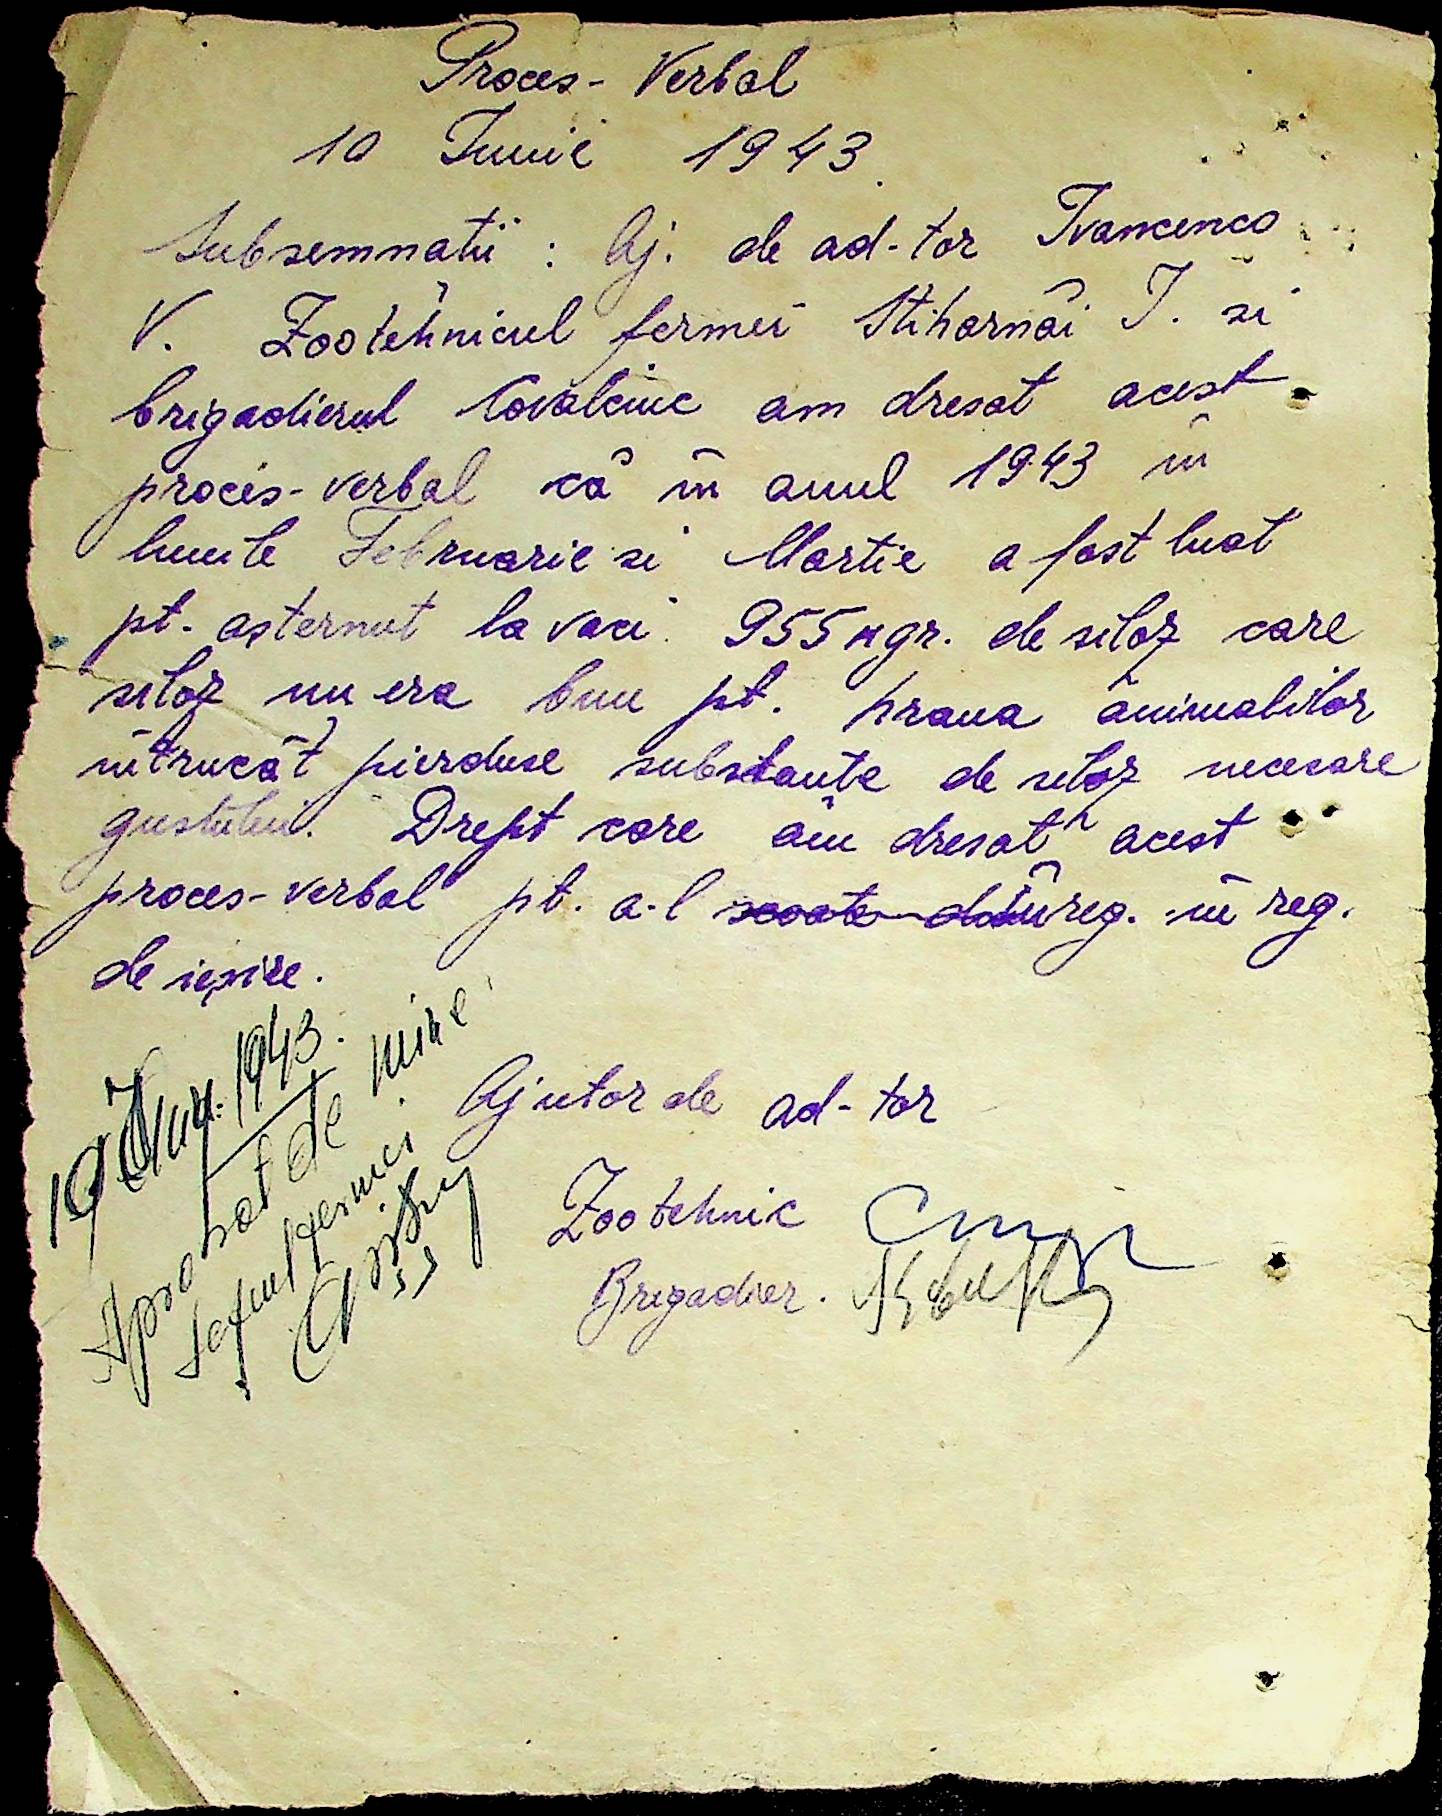 Proces-Verbal
10 Iunie 1943.
Subsemnatii : Aj. de ad-tor Ivancenco
V. Zootehnicul fermei Stiharnâi I. si
brigadierul Covalciuc am dresat acest
proces-verbal că în anul 1943 în
lunile Februarie si Martie a fost luat
pt. așternut la vaci 955 kgr. de siloz care
siloz nu era bun pt. hrana animalilor
întrucât pierduse substanțe de siloz necesare
gustului. Drept care am dresat acest
proces-verbal pt. a-l scoate din înreg. în reg.
de ieșire.
10 Iun. 1943.
Aprobat de mine
seful fermei
Ajutor de ad-tor
Zootehnic
Brigadier.